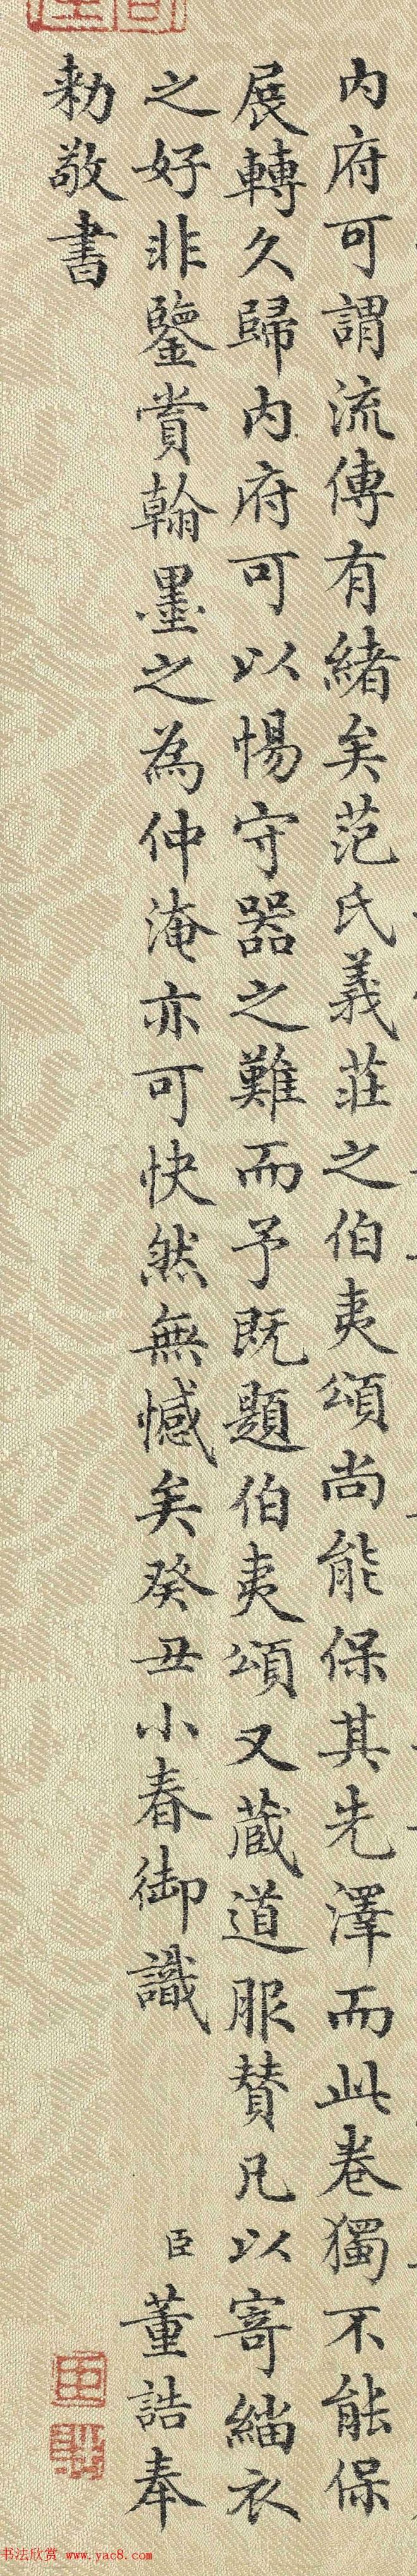 内府可謂流傳有緒矣范氏義莊之伯夷頌尚能保其先澤而此卷獨不能保
展轉久歸内府可以惕守器之難而予既題伯夷頌又蔵道服賛凡以寄緇衣
之好非鑒賞翰墨之為仲淹亦可快然無憾矣癸丑小春御識 臣董誥奉
勅敬書
书法欣赏 www.yac8.com